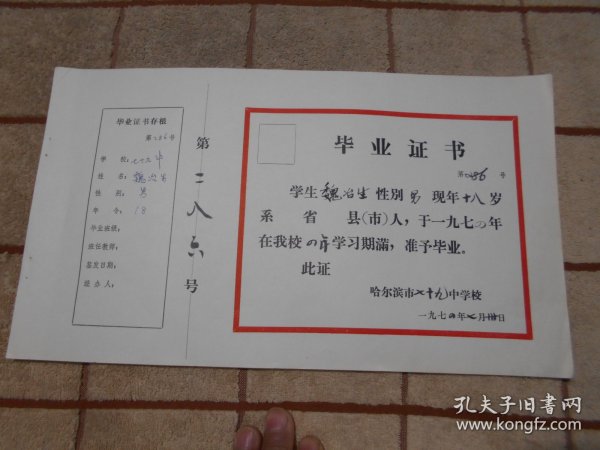 毕业证书存根
第286号
学校:七十九中
姓名:魏治生
性别:男
年令:18
毕业班级:
班任教师:
签发日期:
经办人:
第二八六号
毕业证书
第286号
学生魏治生性别男现年十八岁
系 省 县(市)人,于一九七四年
在我校四年学习期满,准予毕业。
此证
哈尔滨市七十九中学校
一九七四年七月 日
孔夫子旧书网
www.kongfz.com